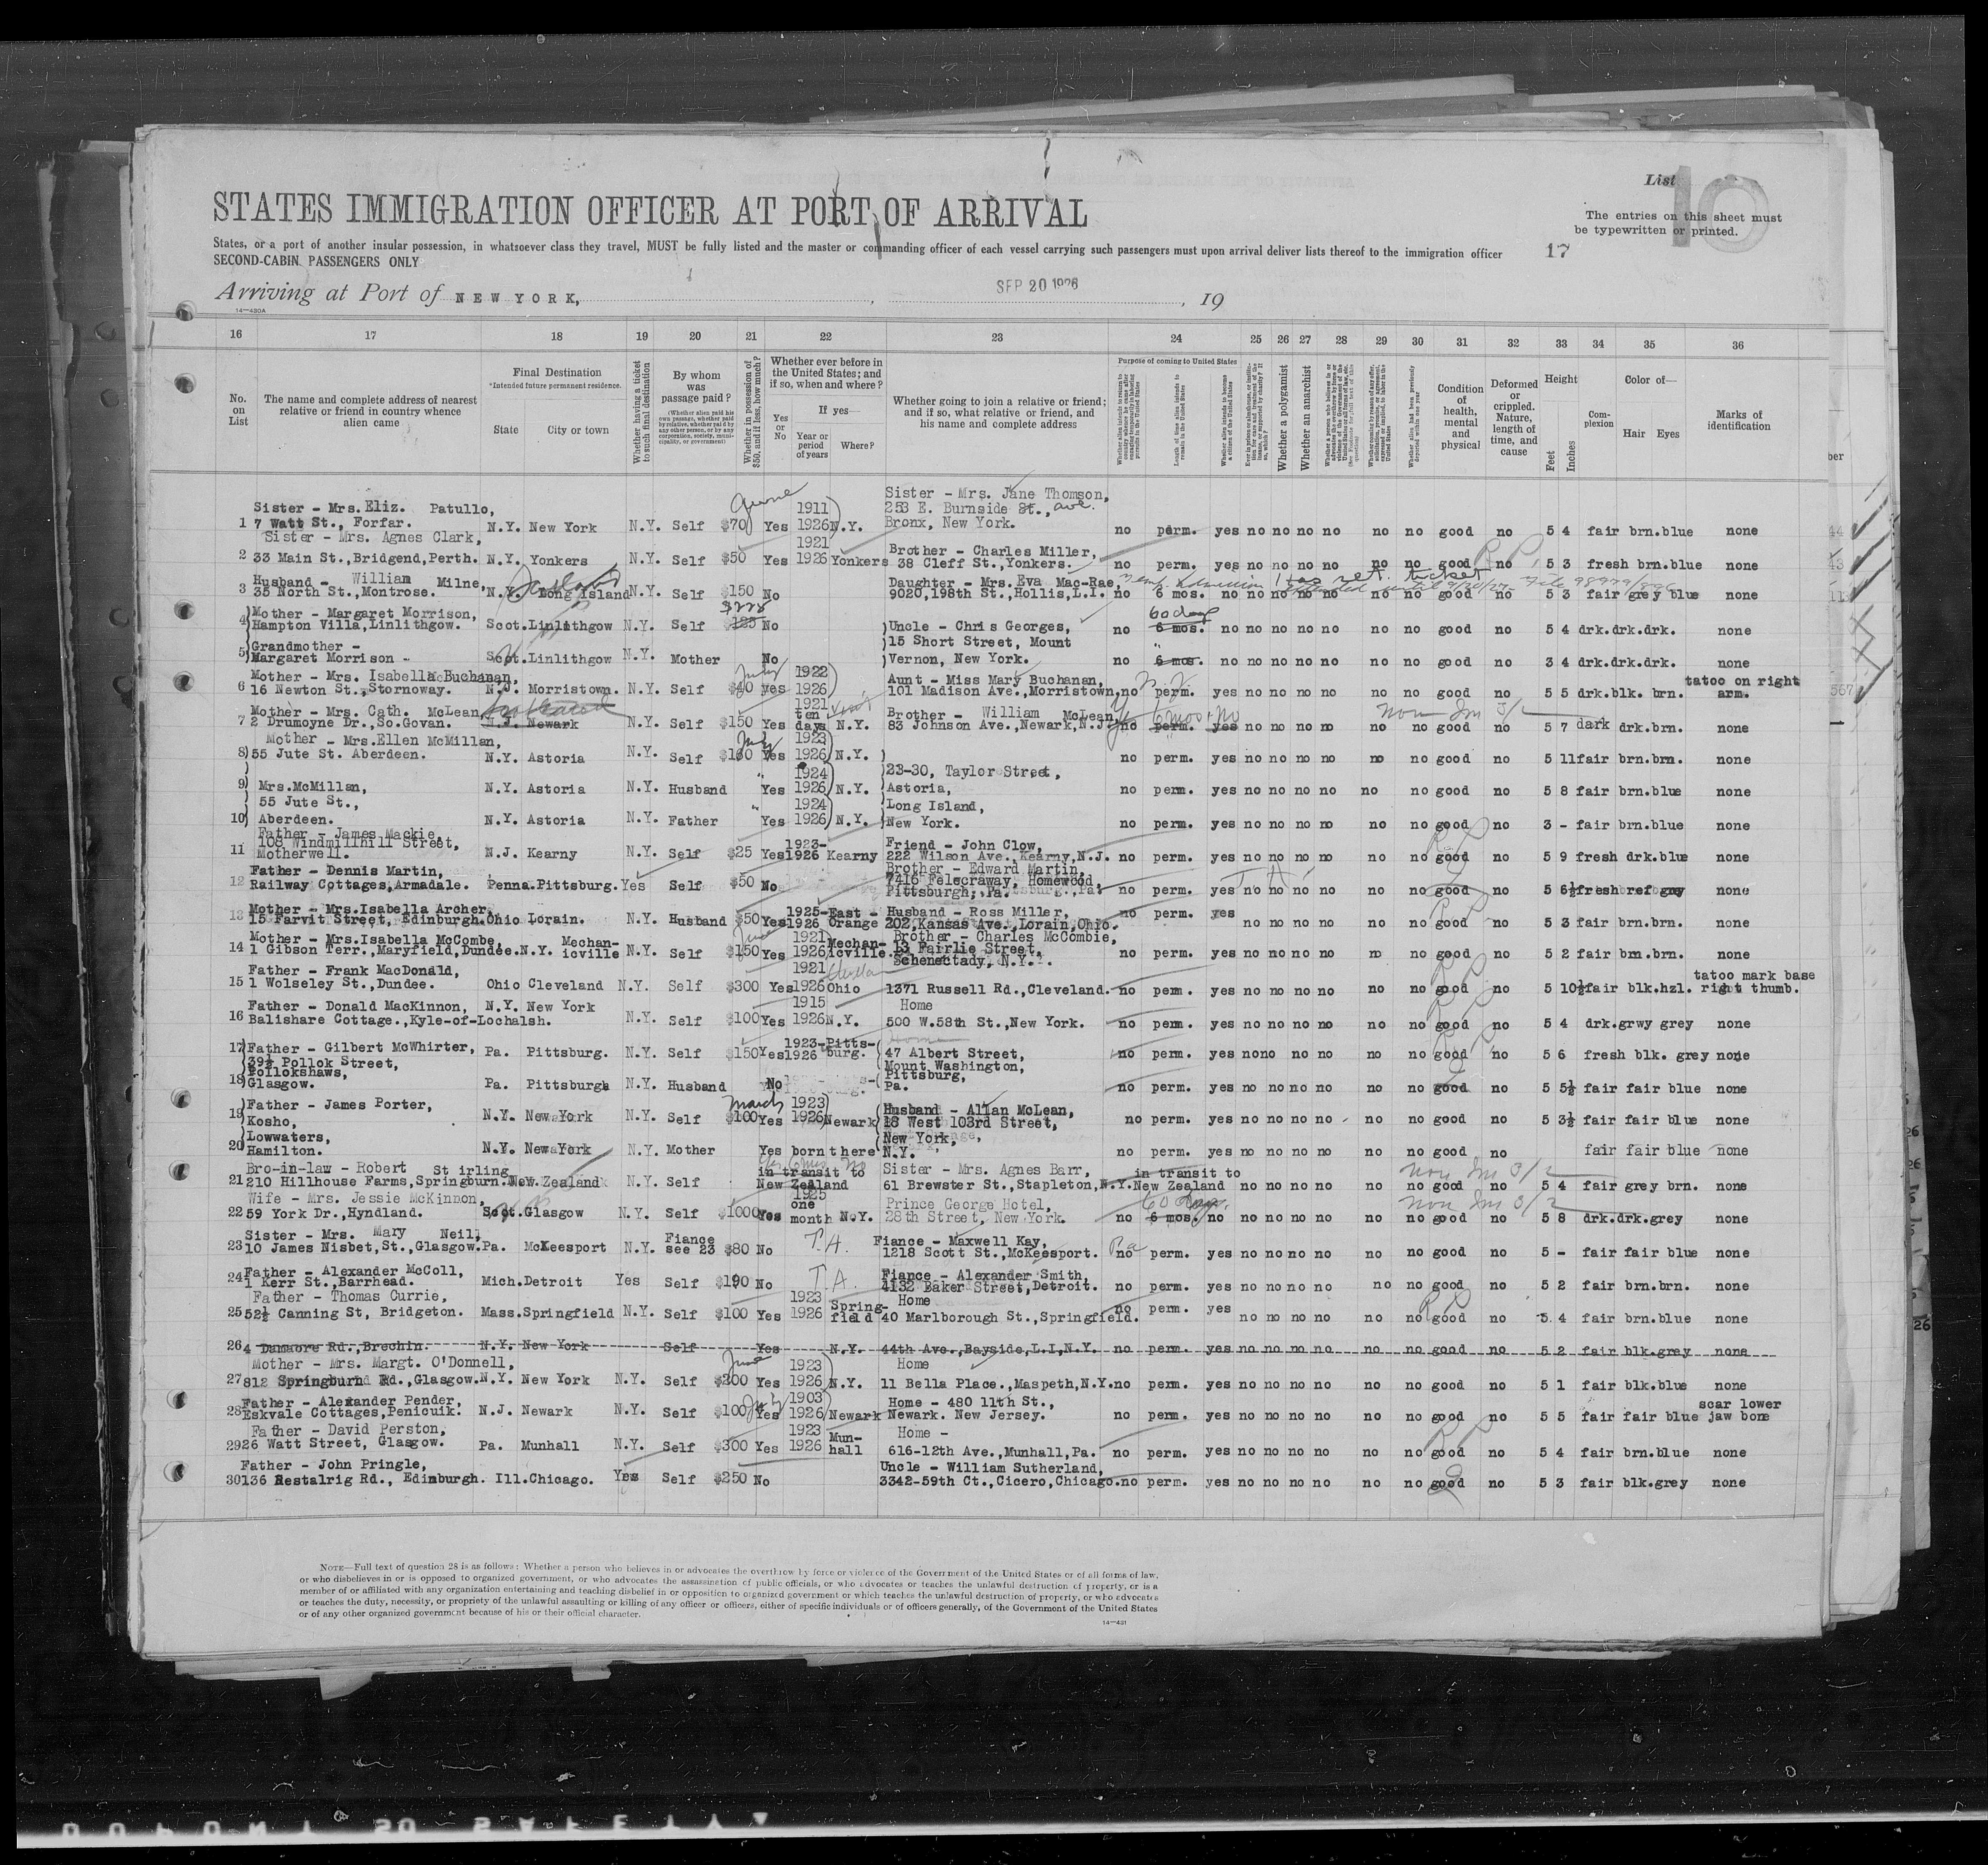 List 10
STATES IMMIGRATION OFFICER AT PORT OF ARRIVAL
The entries on this sheet must
be typewritten or printed.
States, or a port of another insular possession, in whatsoever class they travel, MUST be fully listed and the master or commanding officer of each vessel carrying such passengers must upon arrival deliver lists thereof to the immigration officer
17
SECOND-CABIN PASSENGERS ONLY
Arriving at Port of NEW YORK, , SEP 20 1926 , 19
14—430A
16 17 18 19 20 21 22 23 24 25 26 27 28 29 30 31 32 33 34 35 36
No. on List
The name and complete address of nearest relative or friend in country whence alien came
Final Destination
*Intended future permanent residence.
State City or town
Whether having a ticket to such final destination
By whom was passage paid?
(Whether alien paid his own passage, whether paid by relative, whether paid by any other person, or by any corporation, society, municipality, or government)
Whether in possession of $50, and if less, how much?
Whether ever before in the United States; and if so, when and where?
Yes or No
If yes—
Year or period of years Where?
Whether going to join a relative or friend; and if so, what relative or friend, and his name and complete address
Purpose of coming to United States
Length of time alien intends to remain in the United States
Whether alien intends to become a citizen of the United States
Whether a polygamist
Whether an anarchist
Whether alien had been previously deported within one year
Condition of health, mental and physical
Deformed or crippled. Nature, length of time, and cause
Height
Feet Inches
Complexion
Color of—
Hair Eyes
Marks of identification
Sister - Mrs. Eliz. Patullo, June 1911 Sister - Mrs. Jane Thomson,
1 7 Watt St., Forfar. N.Y. New York N.Y. Self $70 Yes 1926 N.Y. 253 E. Burnside St., ave. Bronx, New York. no perm. yes no no no no no no good no 5 4 fair brn.blue none
Sister - Mrs. Agnes Clark, 1921 Brother - Charles Miller,
2 33 Main St.,Bridgend,Perth. N.Y. Yonkers N.Y. Self $50 Yes 1926 Yonkers 38 Cleff St.,Yonkers. no perm. yes no no no no no no good no 5 3 fresh brn.blue none
Husband - William Milne, Daughter - Mrs. Eva Mac-Rae,
3 35 North St.,Montrose. N.Y. Long Island N.Y. Self $150 No 9020,198th St.,Hollis,L.I. no 6 mos. no no no no no no no good no 5 3 fair grey blue none
Mother - Margaret Morrison,
4 Hampton Villa,Linlithgow. Scot.Linlithgow N.Y. Self $225 $125 No Uncle - Chris Georges, no 60 days 6 mos. no no no no no no no good no 5 4 drk.drk.drk. none
Grandmother - 15 Short Street, Mount
5 Margaret Morrison - Scot.Linlithgow N.Y. Mother No Vernon, New York. no 6 mos. no no no no no no no good no 3 4 drk.drk.drk. none
Mother - Mrs. Isabella Buchanan, July 1922 Aunt - Miss Mary Buchanan, tatoo on right
6 16 Newton St.,Stornoway. N.J. Morristown. N.Y. Self $40 yes 1926 101 Madison Ave.,Morristown, N.J. no perm. yes no no no no no no good no 5 5 drk.blk. brn. arm.
Mother - Mrs. Cath. McLean, 1921 Brother - William McLean,
7 2 Drumoyne Dr.,So.Govan. Scotland N.J. Newark N.Y. Self $150 Yes ten days N.Y. 83 Johnson Ave.,Newark,N.J. no 6 mos. no perm. yes no no no no no no good no 5 7 dark drk.brn. none
Mother - Mrs.Ellen McMillan, July 1923
8 55 Jute St. Aberdeen. N.Y. Astoria N.Y. Self Yes 1926 N.Y. no perm. yes no no no no no no good no 5 11 fair brn.brn. none
1924 23-30, Taylor Street,
9 Mrs.McMillan, N.Y. Astoria N.Y. Husband Yes 1926 N.Y. Astoria, no perm. yes no no no no no no good no 5 8 fair brn.blue none
55 Jute St., 1924 Long Island,
10 Aberdeen. N.Y. Astoria N.Y. Father Yes 1926 N.Y. New York. no perm. yes no no no no no no good no 3 - fair brn.blue none
Father - James Mackie, 108 Windmillhill Street, 1923- Friend - John Clow,
11 Motherwell. N.J. Kearny N.Y. Self $25 Yes 1926 Kearny 222 Wilson Ave.,Kearny,N.J. no perm. yes no no no no no no good no 5 9 fresh drk.blue none
Father - Dennis Martin, Brother - Edward Martin,
12 Railway Cottages,Armadale. Penna.Pittsburg. Yes Self $50 No 7416 Felecraway, Homewood, Pittsburgh, Pa. no perm. yes no no no no no no good no 5 6½ fresh none
Mother - Mrs.Isabella Archer, 1925- East - Husband - Ross Miller,
13 15 Farvit Street, Edinburgh. Ohio Lorain. N.Y. Husband $50 Yes 1926 Orange 202,Kansas Ave.,Lorain,Ohio. no perm. yes no no no no no no good no 5 3 fair brn.brn. none
Mother - Mrs.Isabella McCombe, Mechan- June 1921 Mechan- Brother - Charles McCombie,
14 1 Gibson Terr.,Maryfield,Dundee. N.Y. icville N.Y. Self $150 Yes 1926 icville 13 Fairlie Street, Schenectady, N.Y. no perm. yes no no no no no no good no 5 2 fair brn.brn. none
Father - Frank MacDonald, 1921 tatoo mark base
15 1 Wolseley St.,Dundee. Ohio Cleveland N.Y. Self $300 Yes 1926 Ohio 1371 Russell Rd.,Cleveland. no perm. yes no no no no no no good no 5 10½ fair blk.hzl. right thumb.
Father - Donald MacKinnon, N.Y. New York 1915 Home
16 Balishare Cottage.,Kyle-of-Lochalsh. N.Y. Self $100 Yes 1926 N.Y. 500 W.58th St.,New York. no perm. yes no no no no no no good no 5 4 drk.grwy grey none
17 Father - Gilbert McWhirter, Pa. Pittsburg. N.Y. Self $150 Yes 1923-1926 Pittsburg. Home 47 Albert Street, no perm. yes no no no no no no good no 5 6 fresh blk. grey none
39½ Pollok Street, Pollokshaws, Mount Washington, Pittsburg,
18 Glasgow. Pa. Pittsburgh N.Y. Husband No Pa. no perm. yes no no no no no no good no 5 5½ fair fair blue none
19 Father - James Porter, March 1923 Husband - Allan McLean,
Kosho, N.Y. New York N.Y. Self $100 Yes 1926 Newark 18 West 103rd Street, no perm. yes no no no no no no good no 5 3½ fair fair blue none
Lowwaters, New York,
20 Hamilton. N.Y. New York N.Y. Mother Yes born there N.Y. no perm. yes no no no no no no good no fair fair blue none
Bro-in-law - Robert Stirling in transit to Sister - Mrs. Agnes Barr, in transit to
21 210 Hillhouse Farms,Springburn. New Zealand N.Y. Self New Zealand 61 Brewster St.,Stapleton,N.Y. New Zealand no no no no no no good no 5 4 fair grey brn. none
Wife - Mrs. Jessie McKinnon, 1925 one Prince George Hotel, 60 days.
22 59 York Dr.,Hyndland. Scot.Glasgow N.Y. Self $1000 Yes month N.Y. 28th Street, New York. no 6 mos. no no no no no no no good no 5 8 drk.drk.grey none
Sister - Mrs. Mary Neil, Fiance Fiance - Maxwell Kay,
23 10 James Nisbet,St.,Glasgow. Pa. McKeesport N.Y. see 23 $80 No T.A. 1218 Scott St.,McKeesport. Pa no perm. yes no no no no no no good no 5 - fair fair blue none
Father - Alexander McColl, Fiance - Alexander Smith,
24 1 Kerr St.,Barrhead. Mich.Detroit Yes Self No T.A. 4132 Baker Street,Detroit. no perm. yes no no no no no no good no 5 2 fair brn.brn. none
Father - Thomas Currie, 1923 Spring- Home
25 52½ Canning St, Bridgeton. Mass.Springfield N.Y. Self $100 Yes 1926 field 40 Marlborough St.,Springfield. no perm. yes no no no no no no good no 5 4 fair brn.blue none
26 4 Danmore Rd.,Brechin. N.Y. New York Self Yes N.Y. 44th Ave.,Bayside,L.I,N.Y. no perm. yes no no no no no no good no 5 2 fair blk.grey none
Mother - Mrs. Margt. O'Donnell, June 1923 Home
27 812 Springburn Rd.,Glasgow. N.Y. New York N.Y. Self $200 Yes 1926 N.Y. 11 Bella Place.,Maspeth,N.Y. no perm. yes no no no no no no good no 5 1 fair blk.blue none
Father - Alexander Pender, July 1903 Home - 480 11th St., scar lower
28 Eskvale Cottages,Penicuik. N.J. Newark N.Y. Self $100 Yes 1926 Newark Newark. New Jersey. no perm. yes no no no no no no good no 5 5 fair fair blue jaw bone
Father - David Perston, 1923 Mun- Home -
29 26 Watt Street, Glasgow. Pa. Munhall N.Y. Self $300 Yes 1926 hall 616-12th Ave.,Munhall,Pa. no perm. yes no no no no no no good no 5 4 fair brn.blue none
Father - John Pringle, Uncle - William Sutherland,
30 136 Restalrig Rd., Edinburgh. Ill.Chicago. Yes Self $250 No 3342-59th Ct.,Cicero,Chicago. no perm. yes no no no no no no good no 5 3 fair blk.grey none
NOTE—Full text of question 28 is as follows: Whether a person who believes in or advocates the overthrow by force or violence of the Government of the United States or of all forms of law,
or who disbelieves in or is opposed to organized government, or who advocates the assassination of public officials, or who advocates or teaches the unlawful destruction of property, or is a
member of or affiliated with any organization entertaining and teaching disbelief in or opposition to organized government or which teaches the unlawful destruction of property, or who advocates
or teaches the duty, necessity, or propriety of the unlawful assaulting or killing of any officer or officers, either of specific individuals or of officers generally, of the Government of the United States
or of any other organized government because of his or their official character.
14—431